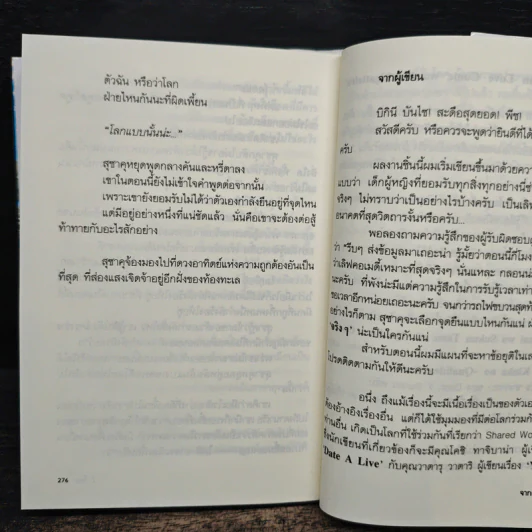 ตัวฉัน หรือว่าโลก
ฝ่ายไหนกันนะที่ผิดเพี้ยน
“โลกแบบนั้นน่ะ...”
สุซาคุหยุดพูดกลางคันและหรี่ตาลง
เขาในตอนนี้ยังไม่เข้าใจคำพูดต่อจากนั้น
เพราะเขายังยอมรับไม่ได้ว่าตัวเองกำลังยืนอยู่ที่จุดไหน
แต่มีอยู่อย่างหนึ่งที่แน่ชัดแล้ว นั่นคือเขาจะต้องต่อสู้
ท้าทายกับอะไรสักอย่าง
สุซาคุจ้องมองไปที่ดวงอาทิตย์แห่งความถูกต้องอันเป็น
ที่สุด ที่ส่องแสงเจิดจ้าอยู่อีกฝั่งของท้องทะเล
276
จากผู้เขียน
บิกินี บันไซ! สะดือสุดยอด! พีซ!
สวัสดีครับ หรือควรจะพูดว่ายินดีที่ได้
ครับ
ผลงานชิ้นนี้ผมเริ่มเขียนขึ้นมาด้วยความ
แบบว่า เด็กผู้หญิงที่ยอมรับทุกสิ่งทุกอย่างนี่ช่
จริงๆ ไม่ทราบว่าเป็นอย่างไรบ้างครับ เป็นเ
อนาคตที่สุดวิตถารงั้นหรือครับ...
พอลองถามความรู้สึกของผู้รับผิดชอบเ
ว่า “รีบๆ ส่งข้อมูลมาเถอะน่า รู้มั้ยว่าตอนนี้กี่โมง
ว่าเลิฟคอเมดี้เหมาะที่สุดจริงๆ นั่นแหละ กลอนน่
นะครับ ที่พังน่ะมีแต่ความรู้สึกในการรับรู้เวลาเท่า
ขอเวลาอีกหน่อยเถอะนะครับ จนกว่ารถไฟขบวนสุดท้
อย่างไรก็ตาม สุซาคุจะเลือกจุดยืนแบบไหนกันแน่
จริงๆ’ น่ะเป็นใครกันแน่
สำหรับตอนนี้ผมมีแผนที่จะหาข้อยุติในเล
โปรดติดตามกันให้ดีนะครับ
อนึ่ง ถึงแม้เรื่องนี้จะมีเนื้อเรื่องเป็นของตัวเอ
ต้องอ้างอิงเรื่องอื่น แต่ก็ได้ใช้มุมมองที่มีต่อโลกร่วมกั
ท่านอื่น เกิดเป็นโลกที่ใช้ร่วมกันที่เรียกว่า Shared Wo
ซึ่งนักเขียนที่เกี่ยวข้องก็จะมีคุณโคชิ ทาจิบานา ผู้เ
‘Date A Live’ กับคุณวาตารุ วาตาริ ผู้เขียนเรื่อง
จาก